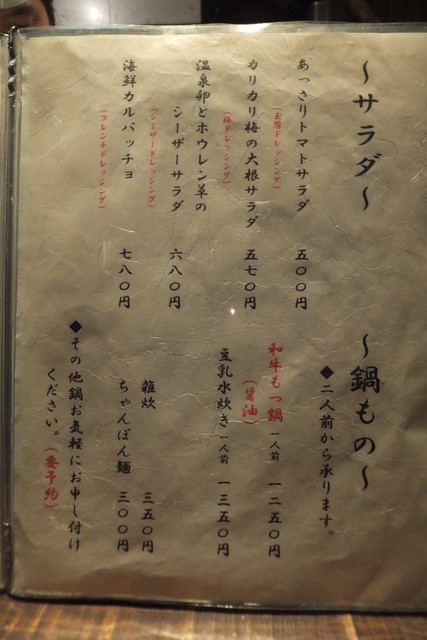 ～サラダ～
あっさりトマトサラダ 五〇〇円
(玉葱ドレッシング)
カリカリ梅の大根サラダ 五七〇円
(梅ドレッシング)
温泉卵とホウレン草の
シーザーサラダ 六八〇円
(シーザードレッシング)
海鮮カルパッチョ 七八〇円
(フレンチドレッシング)
～鍋もの～
◆二人前から承ります。
和牛もつ鍋 一人前 一二五〇円
(醤油)
豆乳水炊き 一人前 一三五〇円
雑炊 三五〇円
ちゃんぽん麺 三〇〇円
◆その他鍋お気軽にお申し付け
ください。(要予約)